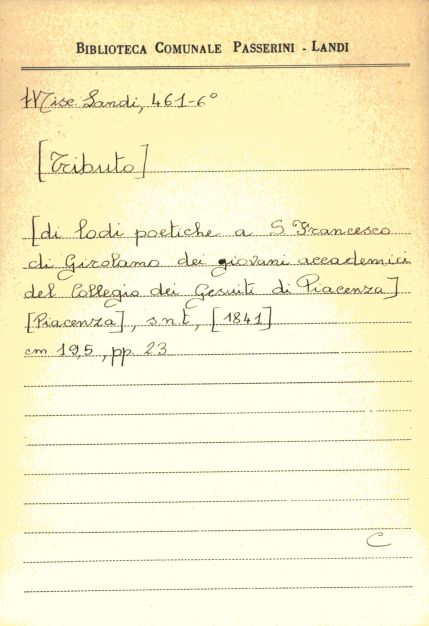 BIBLIOTECA COMUNALE PASSERINI - LANDI
Misc. Landi, 461-6°
[Tributo]
[di lodi poetiche a S. Francesco
di Girolamo dei giovani accademici
del Collegio dei Gesuiti di Piacenza]
[Piacenza], s.n.t., [1841]
cm 19,5, pp. 23
C